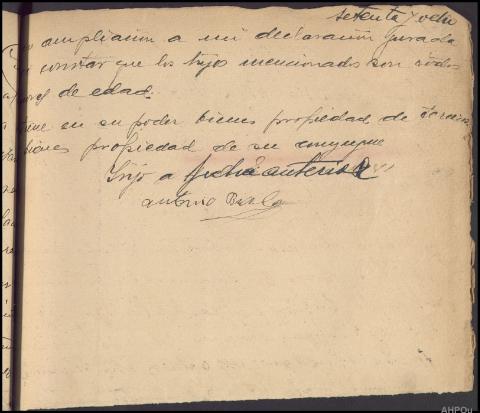 setenta y ocho
ampliación a mi declaración Jurada
constar que los hijos mencionados son todos
de edad.
tiene en su poder bienes propiedad de terceros
bienes propiedad de su conyugue
Gijo a fecha anterior
Antonio
AHPOu